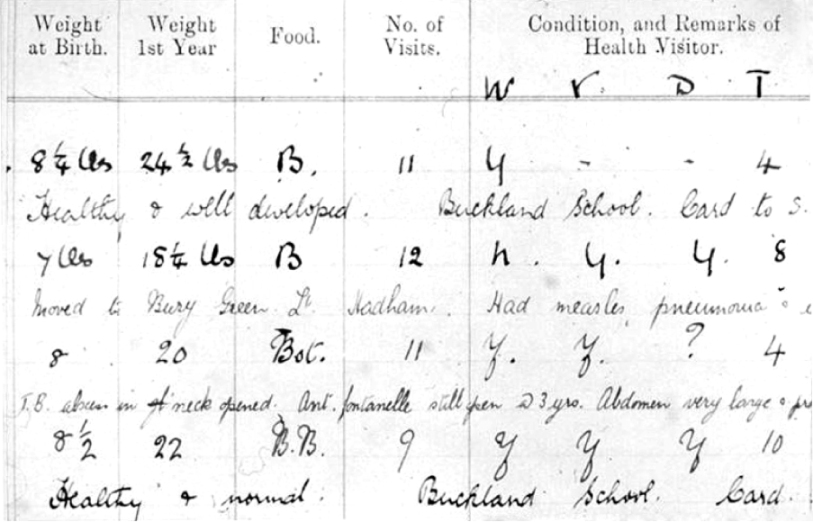 Weight at Birth. Weight 1st Year Food. No. of Visits. Condition, and Remarks of Health Visitor.
W V. D T
8 1/4 lbs 24 1/2 lbs B. 11 y - - 4
Healthy & well developed. Buckland School. Card to S.
7 lbs 18 1/4 lbs B 12 n. y. y. 8
Moved to Bury Green Lt. Hadham. Had measles, pneumonia &
8 20 Bot. 11 y. y. ? 4
T.B. in neck opened. Ant. fontanelle still open 3 yrs. Abdomen very large &
8 1/2 22 B.B. 9 y y y 10
Healthy & normal. Buckland School. Card.